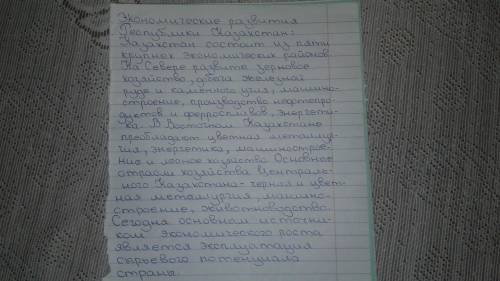 Экономические развития
Республики Казахстан:
Казахстан состоит из пяти
крупнех экономических районов.
На Севере развита зерновое
хозяйство, добыча железной
руде и каменного угля, машино-
строение, производство нефтепро-
дуктов и ферросплавов, энергети-
ка. В Восточном Казахстане
преобладают цветная металлур-
гия, энергетика, машинострое-
ние и лесное хозяйство. Основное
отрасли хозяйства Централь-
ного Казахстана- черная и цвет-
ная металургия, машино-
строение, животноводство.
Сегодня основном источни-
ком экономического роста
является эксплуатация
сырьевого потенциала
страны.